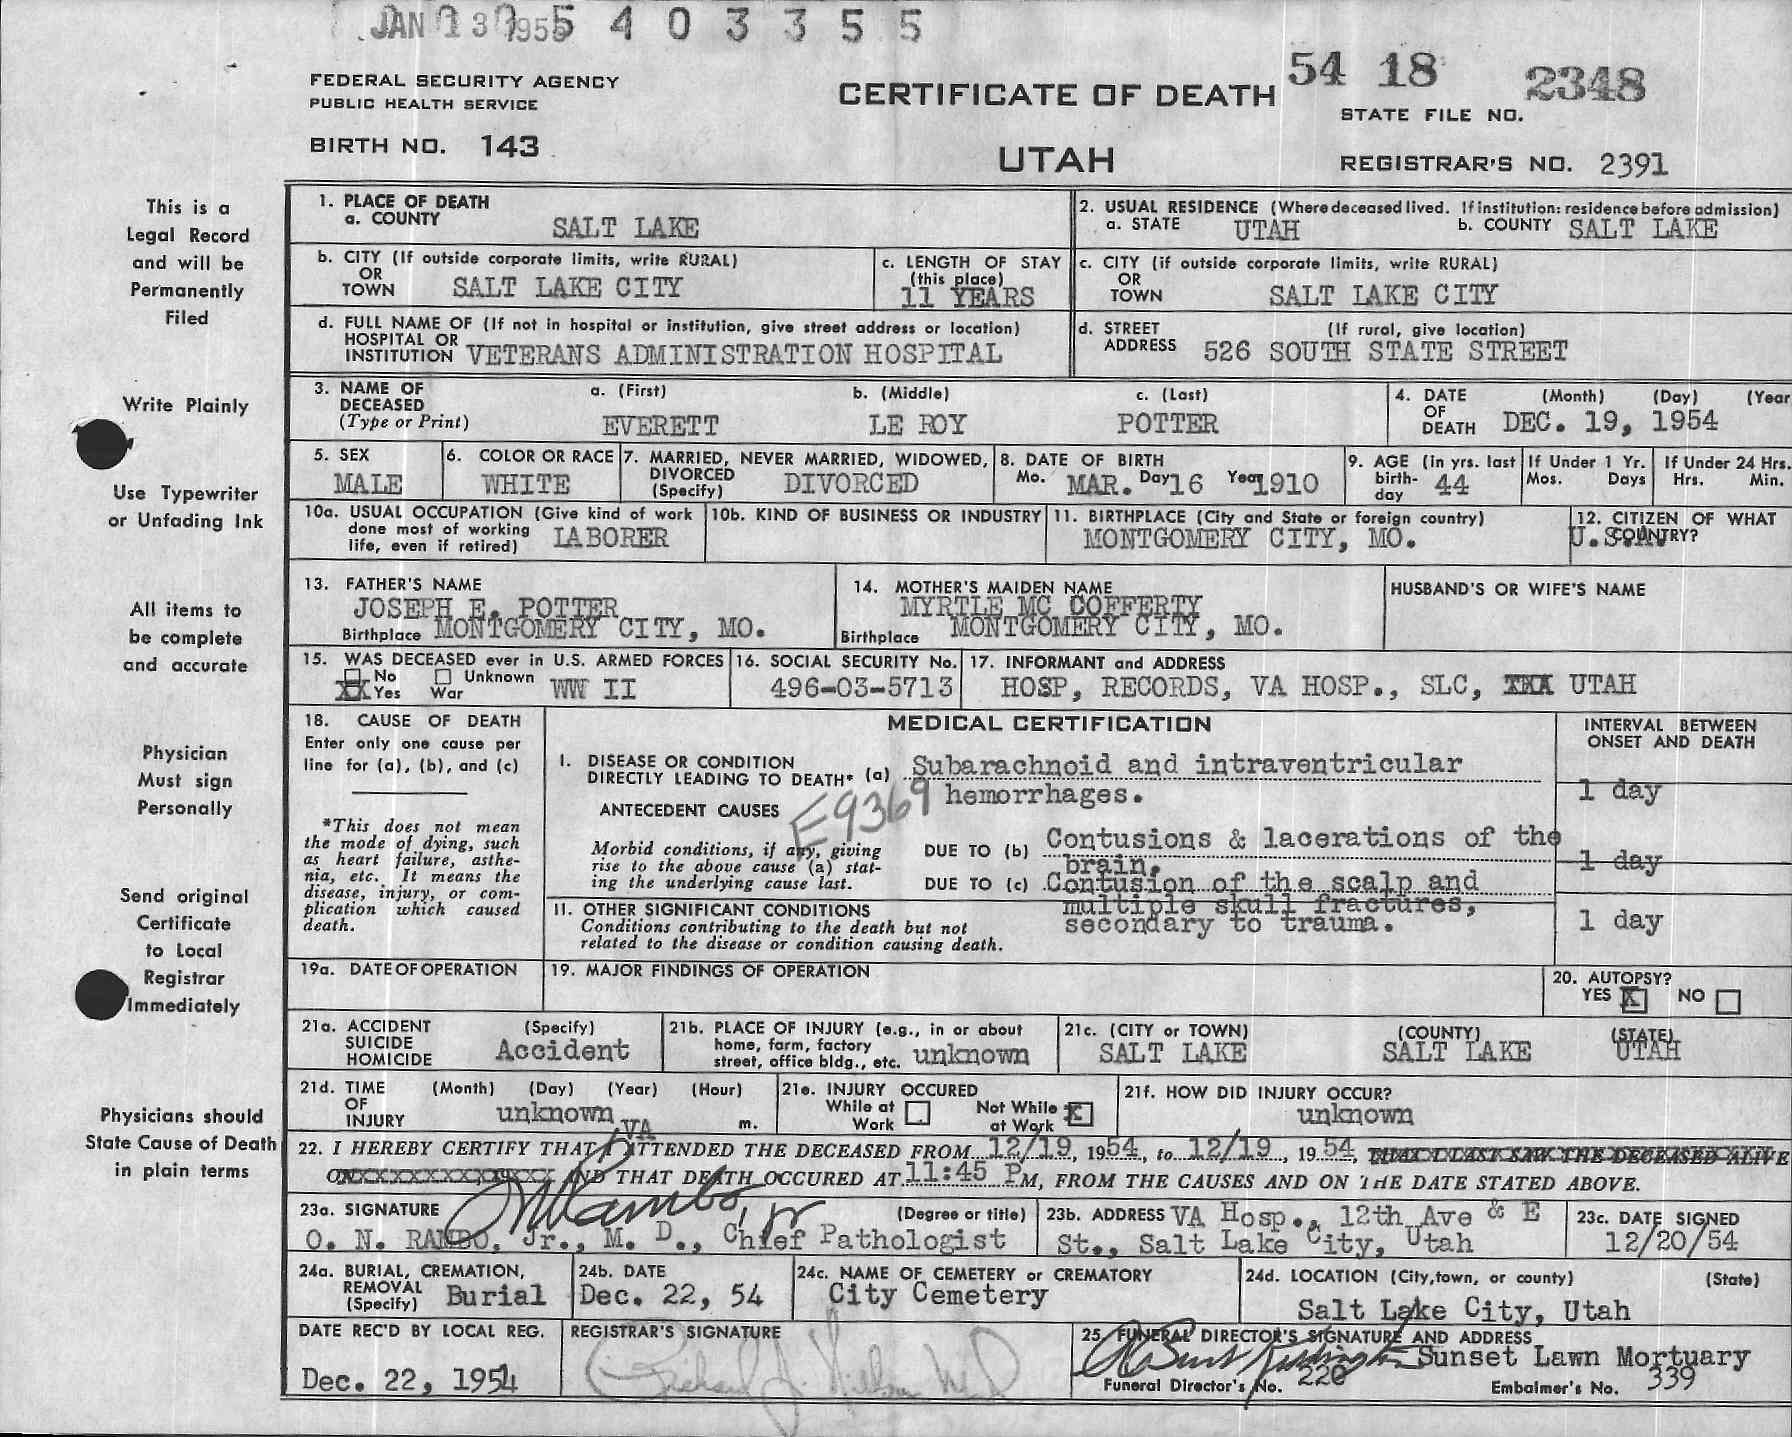 JAN 13 1955 5 4 0 3 3 5 5
FEDERAL SECURITY AGENCY
PUBLIC HEALTH SERVICE
BIRTH NO. 143
CERTIFICATE OF DEATH
UTAH
54 18 2348
STATE FILE NO.
REGISTRAR'S NO. 2391
This is a
Legal Record
and will be
Permanently
Filed
Write Plainly
Use Typewriter
or Unfading Ink
All items to
be complete
and accurate
Physician
Must sign
Personally
Send original
Certificate
to Local
Registrar
Immediately
Physicians should
State Cause of Death
in plain terms
1. PLACE OF DEATH
a. COUNTY SALT LAKE
2. USUAL RESIDENCE (Where deceased lived. If institution: residence before admission)
a. STATE UTAH b. COUNTY SALT LAKE
b. CITY (If outside corporate limits, write RURAL)
OR
TOWN SALT LAKE CITY
c. LENGTH OF STAY
(this place)
11 YEARS
c. CITY (if outside corporate limits, write RURAL)
OR
TOWN SALT LAKE CITY
d. FULL NAME OF (If not in hospital or institution, give street address or location)
HOSPITAL OR
INSTITUTION VETERANS ADMINISTRATION HOSPITAL
d. STREET (If rural, give location)
ADDRESS 526 SOUTH STATE STREET
3. NAME OF a. (First) b. (Middle) c. (Last)
DECEASED
(Type or Print) EVERETT LE ROY POTTER
4. DATE (Month) (Day) (Year
OF
DEATH DEC. 19, 1954
5. SEX
MALE
6. COLOR OR RACE
WHITE
7. MARRIED, NEVER MARRIED, WIDOWED,
DIVORCED
(Specify) DIVORCED
8. DATE OF BIRTH
Mo. MAR. Day 16 Year 1910
9. AGE (in yrs. last
birth-
day 44
If Under 1 Yr.
Mos. Days
If Under 24 Hrs.
Hrs. Min.
10a. USUAL OCCUPATION (Give kind of work
done most of working
life, even if retired) LABORER
10b. KIND OF BUSINESS OR INDUSTRY
11. BIRTHPLACE (City and State or foreign country)
MONTGOMERY CITY, MO.
12. CITIZEN OF WHAT
COUNTRY?
U.S.A.
13. FATHER'S NAME
JOSEPH E. POTTER
Birthplace MONTGOMERY CITY, MO.
14. MOTHER'S MAIDEN NAME
MYRTLE MC COFFERTY
Birthplace MONTGOMERY CITY, MO.
HUSBAND'S OR WIFE'S NAME
15. WAS DECEASED ever in U.S. ARMED FORCES
No Unknown
XX Yes War WW II
16. SOCIAL SECURITY No.
496-03-5713
17. INFORMANT and ADDRESS
HOSP, RECORDS, VA HOSP., SLC, UTAH
18. CAUSE OF DEATH
Enter only one cause per
line for (a), (b), and (c)
*This does not mean
the mode of dying, such
as heart failure, asthe-
nia, etc. It means the
disease, injury, or com-
plication which caused
death.
MEDICAL CERTIFICATION
I. DISEASE OR CONDITION
DIRECTLY LEADING TO DEATH* (a) Subarachnoid and intraventricular
hemorrhages.
ANTECEDENT CAUSES
E9369
Morbid conditions, if any, giving
rise to the above cause (a) stat-
ing the underlying cause last.
DUE TO (b) Contusions & lacerations of the
brain.
DUE TO (c) Contusion of the scalp and
multiple skull fractures,
secondary to trauma.
II. OTHER SIGNIFICANT CONDITIONS
Conditions contributing to the death but not
related to the disease or condition causing death.
INTERVAL BETWEEN
ONSET AND DEATH
1 day
1 day
1 day
19a. DATE OF OPERATION
19. MAJOR FINDINGS OF OPERATION
20. AUTOPSY?
YES X NO
21a. ACCIDENT (Specify)
SUICIDE
HOMICIDE Accident
21b. PLACE OF INJURY (e.g., in or about
home, farm, factory
street, office bldg., etc. unknown
21c. (CITY or TOWN) (COUNTY) (STATE)
SALT LAKE SALT LAKE UTAH
21d. TIME (Month) (Day) (Year) (Hour)
OF
INJURY unknown m.
21e. INJURY OCCURED
While at Work
Not While at Work X
21f. HOW DID INJURY OCCUR?
unknown
VA
22. I HEREBY CERTIFY THAT I ATTENDED THE DECEASED FROM 12/19, 1954, to 12/19, 1954, THAT I LAST SAW THE DECEASED ALIVE
ON AND THAT DEATH OCCURED AT 11:45 P M, FROM THE CAUSES AND ON THE DATE STATED ABOVE.
23a. SIGNATURE ONRambo, Jr (Degree or title)
O. N. RAMBO, Jr., M. D., Chief Pathologist
23b. ADDRESS VA Hosp., 12th Ave & E
St., Salt Lake City, Utah
23c. DATE SIGNED
12/20/54
24a. BURIAL, CREMATION,
REMOVAL
(Specify) Burial
24b. DATE
Dec. 22, 54
24c. NAME OF CEMETERY or CREMATORY
City Cemetery
24d. LOCATION (City, town, or county) (State)
Salt Lake City, Utah
DATE REC'D BY LOCAL REG.
Dec. 22, 1954
REGISTRAR'S SIGNATURE
25. FUNERAL DIRECTOR'S SIGNATURE AND ADDRESS
Sunset Lawn Mortuary
Funeral Director's No. 226 Embalmer's No. 339